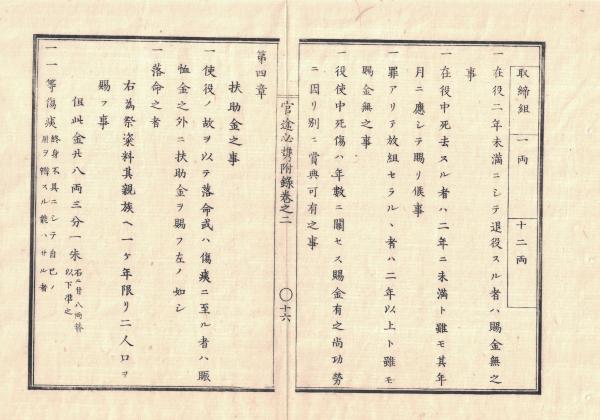 取締組 一両 十二両
一在役二年未満ニシテ退役スル者ハ賜金無之
事
一在役中死去スル者ハ二年ニ未満ト雖モ其年
月ニ應シテ賜リ候事
一罪アリテ放組セラルヽ者ハ二年以上ト雖モ
賜金無之事
一役使中死傷ハ年数ニ關セス賜金有之尚功勞
ニ因リ別ニ賞典可有之事
官途必携附錄卷之二 〇十六
第四章
扶助金之事
一使役ノ故ヲ以テ落命或ハ傷痍ニ至ル者ハ賑
恤金之外ニ扶助金ヲ賜フ左ノ如シ
一落命之者
右為祭粢料其親族ヘ一ケ年限リ二人口ヲ
賜フ事
但此金廿八両三分一朱 石ニ廿八両替 以下准之
一一等傷痍 終身不具ニシテ自己ノ 用ヲ辨スル能ハサル者